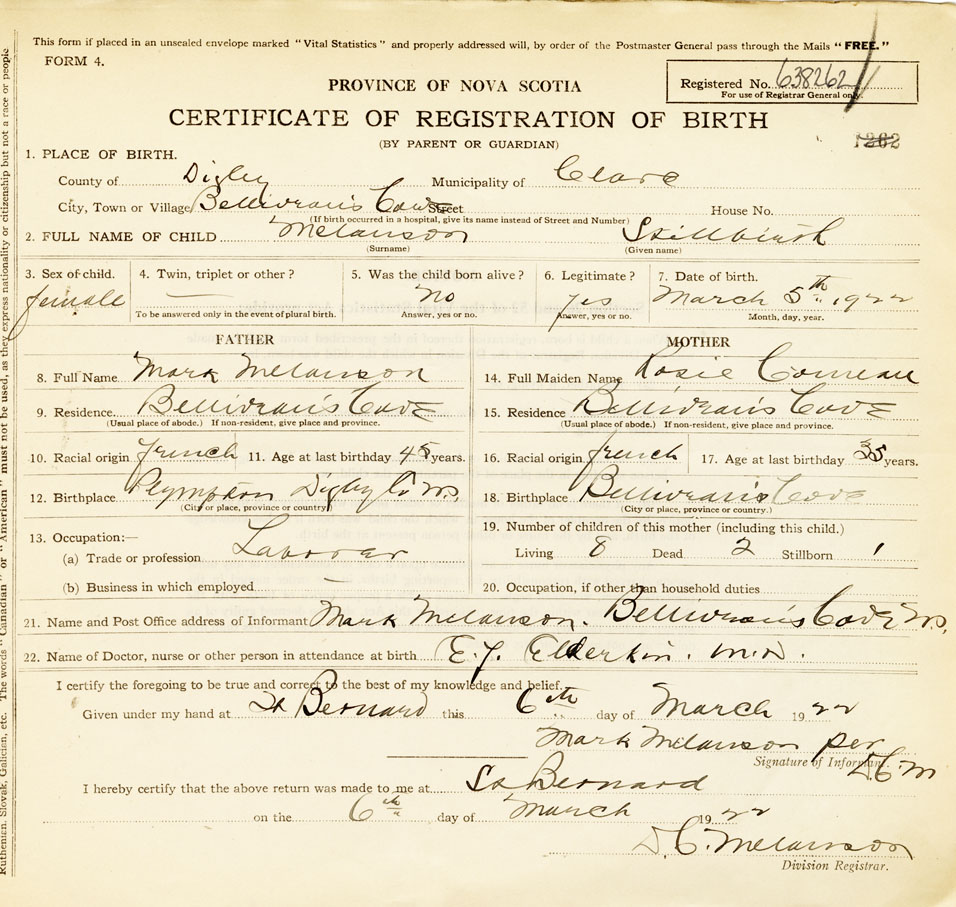 This form if placed in an unsealed envelope marked "Vital Statistics" and properly addressed will, by order of the Postmaster General pass through the Mails "FREE."
FORM 4.
Registered No. 638262
For use of Registrar General only.
PROVINCE OF NOVA SCOTIA
CERTIFICATE OF REGISTRATION OF BIRTH
(BY PARENT OR GUARDIAN)
1262
1. PLACE OF BIRTH.
County of Digby Municipality of Clare
City, Town or Village Belliveau's Cove Street House No.
(If birth occurred in a hospital, give its name instead of Street and Number)
2. FULL NAME OF CHILD Melanson Stillbirth
(Surname) (Given name)
3. Sex of child. 4. Twin, triplet or other? 5. Was the child born alive? 6. Legitimate? 7. Date of birth.
female — no yes March 5th 1922
To be answered only in the event of plural birth. Answer, yes or no. Answer, yes or no. Month, day, year.
FATHER MOTHER
8. Full Name Mark Melanson 14. Full Maiden Name Rosie Comeau
9. Residence Belliveau's Cove 15. Residence Belliveau's Cove
(Usual place of abode.) If non-resident, give place and province. (Usual place of abode.) If non-resident, give place and province.
10. Racial origin french 11. Age at last birthday 45 years. 16. Racial origin french 17. Age at last birthday 35 years.
12. Birthplace Plympton Digby Co N.S. 18. Birthplace Belliveau's Cove
(City or place, province or country) (City or place, province or country.)
13. Occupation:— 19. Number of children of this mother (including this child.)
(a) Trade or profession Laborer Living 8 Dead 2 Stillborn 1
(b) Business in which employed — 20. Occupation, if other than household duties
21. Name and Post Office address of Informant Mark Melanson. Belliveau's Cove N.S.
22. Name of Doctor, nurse or other person in attendance at birth E.J. Elderkin. M.D.
I certify the foregoing to be true and correct to the best of my knowledge and belief.
Given under my hand at St Bernard this 6th day of March 1922
Mark Melanson per
Signature of Informant. D.C.M
I hereby certify that the above return was made to me at St Bernard
on the 6th day of March 1922
D.C. Melanson
Division Registrar.
Ruthenian, Slovak, Galician, etc. The words "Canadian" or "American" must not be used, as they express nationality or citizenship but not a race or people.